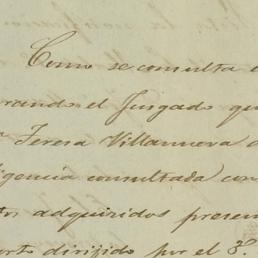 Como se consulta
rando el Juzgado que
Teresa Villanueva
igencia consultada con
adquiridos presen
dirijido por el 3º